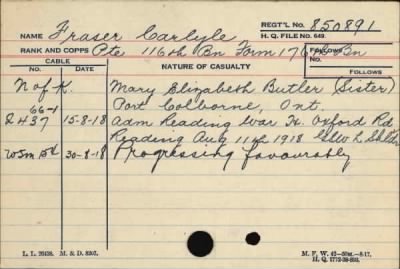 REGT'L No. 850891
NAME Fraser Carlyle
H. Q. FILE NO. 649.
RANK AND CORPS Pte 116th Bn Form 176th Bn
FOLLOWS
CABLE
NO. DATE
NATURE OF CASUALTY
FOLLOWS
N of K. Mary Elizabeth Butler (Sister)
66-1 Port Colborne, Ont.
2437 15-8-18 Adm Reading War H. Oxford Rd
Reading Aug 11th 1918
30-8-18 Progressing favourably
L. L. 26438. M. & D. 8207.
M. F. W. 42—50M.—8-17.
H. Q. 1772-39-893.